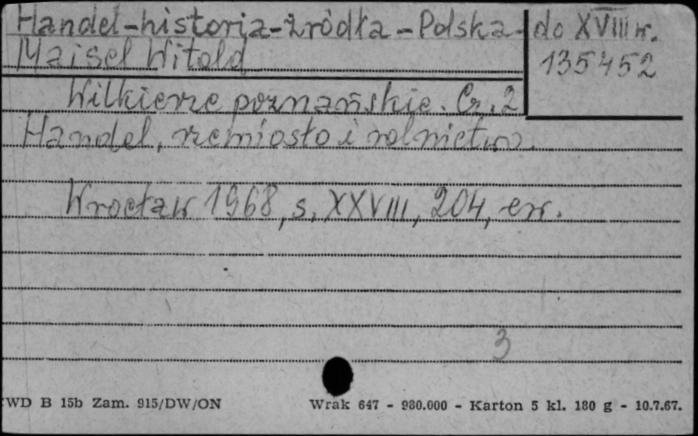 Handel-historia-źródła-Polska-do XVIII w.
Maisel Witold
135452
Wilkierze poznańskie. Cz. 2
Handel, rzemiosło i rolnictwo.
Wrocław 1968, s. XXVIII, 204, err.
3
WD B 15b Zam. 915/DW/ON Wrak 647 - 980.000 - Karton 5 kl. 180 g - 10.7.67.